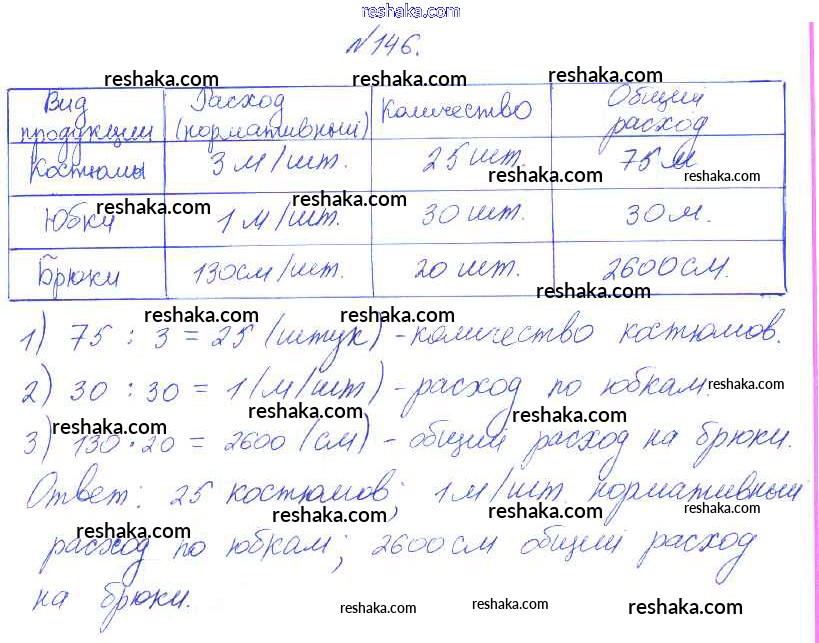 reshaka.com
№146.
reshaka.com reshaka.com reshaka.com
Вид продукции Расход (нормативный) Количество Общий расход
Костюмы 3 м/шт. 25 шт. 75 м
reshaka.com reshaka.com
reshaka.com reshaka.com
Юбки 1 м/шт. 30 шт. 30 м.
Брюки 130 см/шт. 20 шт. 2600 см.
reshaka.com
reshaka.com reshaka.com
1) 75 : 3 = 25 (штук) - количество костюмов.
2) 30 : 30 = 1 (м/шт) - расход по юбкам.
reshaka.com
reshaka.com reshaka.com
reshaka.com
3) 130 · 20 = 2600 (см) - общий расход на брюки.
Ответ: 25 костюмов; 1 м/шт. нормативный
reshaka.com reshaka.com reshaka.com
reshaka.com
расход по юбкам; 2600 см общий расход
на брюки.
reshaka.com reshaka.com reshaka.com